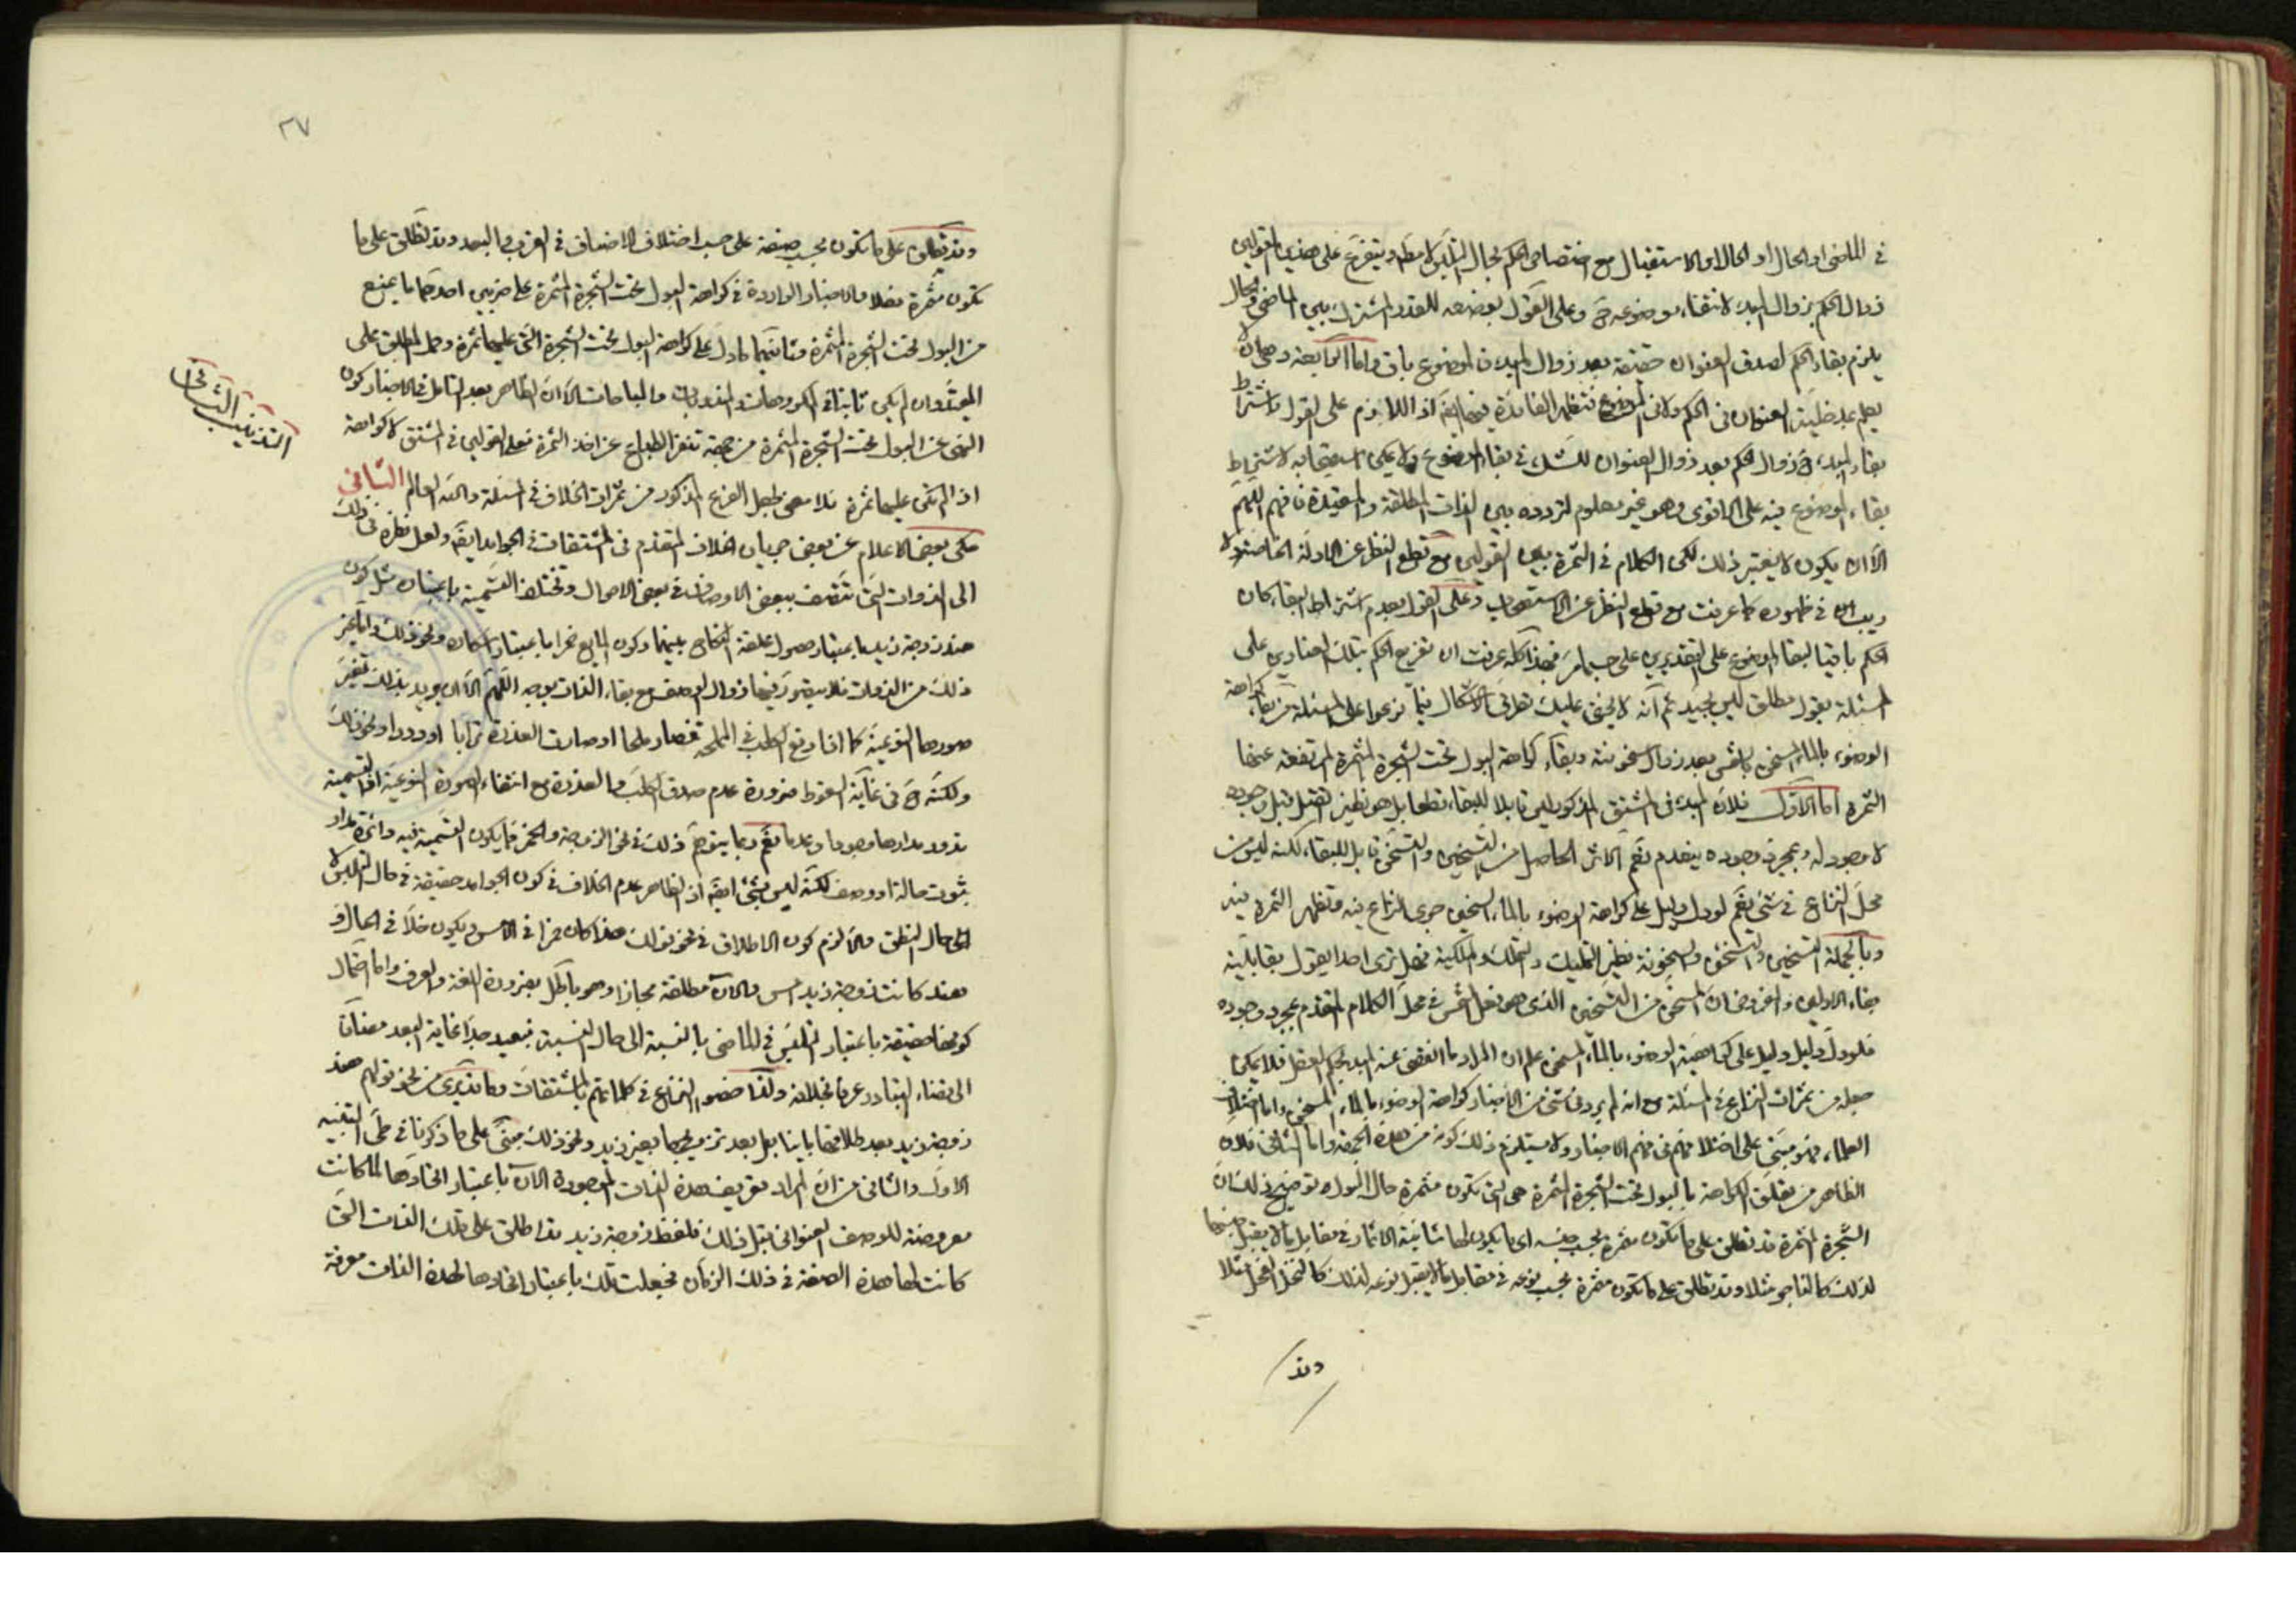 في الماضي او الحال او الحال او الاستقبال مع اختصاص الحكم بحال التلبس لا مط ويتفرع على هذين القولين
زوال الحكم بزوال المبدء لانتفاء موضوعه ح وعلى القول بوضعه للقدر المشترك بين الماضي والحال
يلزم بقاء الحكم لصدق العنوان حقيقة بعد زوال المبدء فالموضوع باق واما الرابعة وهي ان لا
يعلم مدخلية العنوان في الحكم ولا في الموضوع فتظهر الفائدة فيها ايض اذ اللازم على القول باشتراط
بقاء المبدء ح زوال الحكم بعد زوال العنوان للشك في بقاء الموضوع ولا يمكن استصحابه لاشتراط
بقاء الموضوع فيه على الاقوى وهو غير معلوم لتردده بين الذات المطلقة والمقيدة فافهم اللهم
الا ان يكون لا يعتبر ذلك لكن الكلام في الثمرة بين القولين مع قطع النظر عن الادلة الخاصة ولا
ريب في ظهوره كما عرفت مع قطع النظر عن الاستصحاب وعلى القول بعدم اشتراط البقاء كان
الحكم باقيا لبقاء الموضوع على التقديرين على حسب ما مر فبهذا كله عرفت ان تفريع الحكم بتلك العناوين على
المسئلة بقول مطلق ليس بجيد ثم انه لا يخفى عليك تطرق الاشكال فيما فرعوا على المسئلة من بقاء كراهة
الوضوء بالماء المسخن بالشمس بعد زوال سخونته وبقاء كراهة البول تحت الشجرة المثمرة المرتفعة عنها
الثمرة اما الاول فلان المبدء في المشتق المذكور ليس قابلا للبقاء قطعا بل هو نظير القتل قبل وجوده
لا وجود له وبمجرد وجوده ينعدم نعم الاثر الحاصل من التسخين والتسخن قابل للبقاء لكنه ليس من
محل النزاع في شئ نعم لو دل دليل على كراهة الوضوء بالماء السخين جرى النزاع فيه وتظهر الثمرة فيه
وبالجملة التسخين والتسخن والسخونة نظير التمليك والتملك والملكية فهل ترى احدا يقول بقابلية
بقاء الاولين والفروض ان المسخن من التسخين الذي هو فعل الشمس في محل الكلام المتقدم بمجرد وجوده
فلو دل دليل دليل على كراهية الوضوء بالماء المسخن علم ان المراد ما انقضى عنه المبدء بحكم العقل فلا يمكن
جعله من ثمرات النزاع في المسئلة مع انه لم يرد في شئ من الاخبار كراهة الوضوء بالماء المسخن واما اختلاف
العلماء فهو مبني على اختلافهم في فهم الاخبار ولا يستلزم ذلك كونه من هذه الجهة واما الثاني فلان
الظاهر من تعلق الكراهة بالبول تحت الشجرة المثمرة هي التي تكون مثمرة حال البول توضيح ذلك ان
الشجرة المثمرة قد تطلق على ما تكون مثمرة بحسب جنسه اي ما يكون لها شانية الاثمار في مقابل ما لا يقبل جنسها
لذلك كالناجو مثلا وقد تطلق على ما تكون مثمرة بحسب نوعه في مقابل ما لا يقبل نوعه لذلك كالنخل الفحل مثلا
وقد
٣٧
وقد تطلق على ما تكون بحسب صنفه على حسب اختلاف الاصناف في القرب والبعد وقد تطلق على ما
تكون مثمرة فعلا والاخبار الواردة في كراهة البول تحت الشجرة المثمرة على ضربين احدهما ما يمنع
من البول تحت الشجرة المثمرة وثانيهما ما دل على كراهة البول تحت الشجرة التي عليها ثمرة وحمل المطلق على
المقيد وان لم يكن ثابتا في المكروهات والمندوبات والمباحات الا ان الظاهر بعد التامل في الاخبار كون
النهي عن البول تحت الشجرة المثمرة من جهة تنفر الطباع عن اخذ الثمرة فعلى القولين في المشتق لا كراهة
اذا لم تكن عليها ثمرة فلا معنى لجعل الفرع المذكور من ثمرات الخلاف في المسئلة والله العالم الثاني
التذنيب الثاني
حكى بعض الاعلام عن بعض جريان الخلاف المتقدم في المشتقات في الجوامد ايض ولعل نظره في ذلك
الى الذوات التي تتصف ببعض الاوصاف في بعض الاحوال وتختلف التسمية باعتباره مثل كون
هند زوجة زيد باعتبار حصول علقة النكاح بينهما وكون المايع خمرا باعتبار اسكاره ونحو ذلك واما غير
ذلك من الذوات فلا يتصور فيها زوال الوصف مع بقاء الذات بوجه اللهم الا ان يريد بذلك تغير
صورها النوعية كما اذا وقع الكلب في المملحة فصار ملحا او صارت العذرة ترابا او دودا ونحو ذلك
ولكنه ح في غاية السقوط ضرورة عدم صدق الكلب والعذرة مع انتفاء الصورة النوعية اذ التسمية
تدور مدارها وجودا وعدما نعم ربما يتوهم ذلك في نحو الزوجة والخمر مما يكون التسمية فيه دائرة مدار
ثبوت حالة او وصف لكنه ليس بشئ ايض اذ الظاهر عدم الخلاف في كون الجوامد حقيقة في حال التلبس لا
في حال النطق والا لزم كون الاطلاق في نحو قولك هذا كان خمرا في الامس ويكون خلا في الحال و
هند كانت زوجة زيد امس والان مطلقة مجازا وهو باطل بضرورة اللغة والعرف واما احتمال
كونها حقيقة باعتبار التلبس في الماضي بالنسبة الى حال النسبة فبعيد جدا غاية البعد مضافا
الى قضاء التبادر عرفا بخلافه ولذا خصوا النزاع في كلماتهم بالمشتقات وما تديرى من نحو قولهم هند
زوجة زيد بعد طلاقها باينا بل بعد تزويجها بغير زيد ونحو ذلك مبني على ما ذكرنا في طي التنبيه
الاول والثاني من ان المراد تعريف هذه الذات الموجودة الان باعتبار اتحادها لما كانت
معروضة للوصف العنواني قبل ذلك فلفظ زوجة زيد قد اطلق على تلك الذات التي
كانت لها هذه الصفة في ذلك الزمان فجعلت تلك باعتبار اتحادها لهذه الذات معرفة